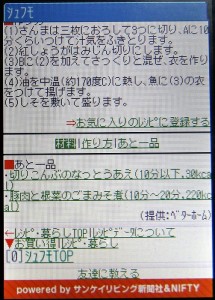 シュフモ
(1)さんまは三枚におろして3つに切り、Aに10
分くらいつけて汁気をふきとります。
(2)紅しょうがはみじん切りにします。
(3)Bに(2)を加えてさっくりと混ぜ、衣を作り
ます。
(4)油を中温(約170度C)に熱し、魚に(3)の衣
をつけて揚げます。
(5)しそを敷いて盛ります。
⇒お気に入りのレシピに登録する
材料|作り方|あと一品
■あと一品
・切りこんぶのなっとうあえ(10分以下,30kca
l)
・豚肉と根菜のごまみそ煮(10分~20分,220kc
al)
(提供:ベターホーム)
←レシピ・暮らしTOP|レシピデータについて
▼お買い得|レシピ・暮らし
[0]シュフモTOP
友達に教える
powered by サンケイリビング新聞社&NIFTY